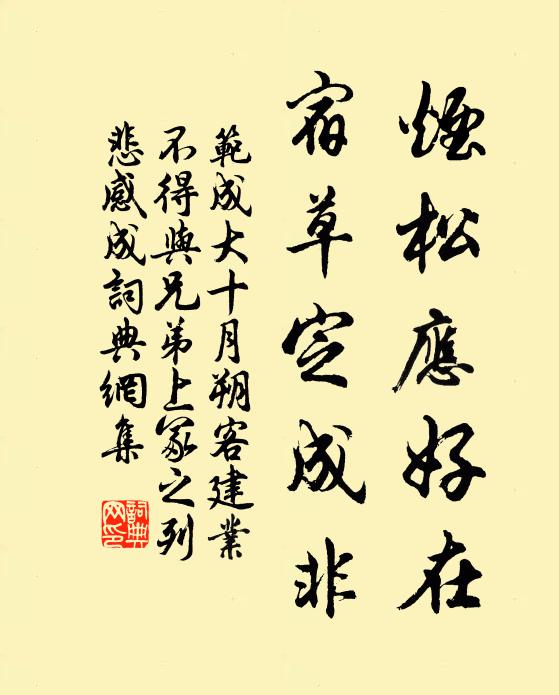 煙松應好在
宿草定成非
範成大十月朔客建業
不得與兄弟上冢之列
悲感成詞典網集
詞典网印